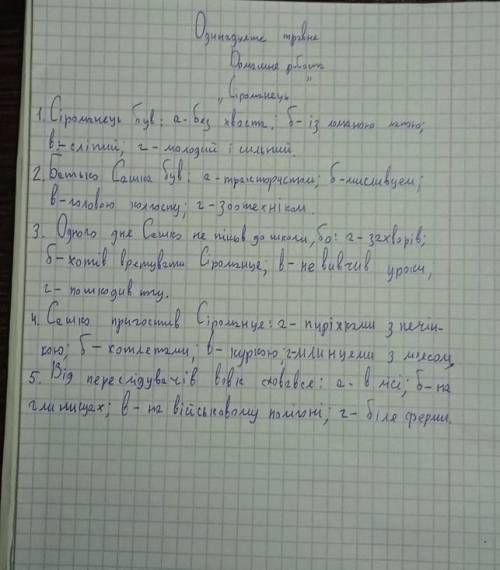 Одинадцяте травня
Домашня робота
"Сіроманець"
1. Сіроманець був: а- без хвоста; б- із ломаною лапою;
в- сліпий, г- молодий і сильний.
2. Батько Сашка був: а- трактористом; б- мисливцем;
в- головою колгоспу; г- зоотехніком.
3. Одного дня Сашко не пішов до школи, бо: а- захворів;
б- хотів врятувати Сіроманця; в- не вивчив уроки,
г- пошкодив ногу.
4. Сашко пригостив Сіроманця: а- пиріжками з печін-
кою; б- котлетами; в- куркою; г- млинцями з м'ясом.
5. Від переслідувачів вовк сховався: а- в лісі; б- на
глинищах; в- на військовому полігоні; г- біля ферми.